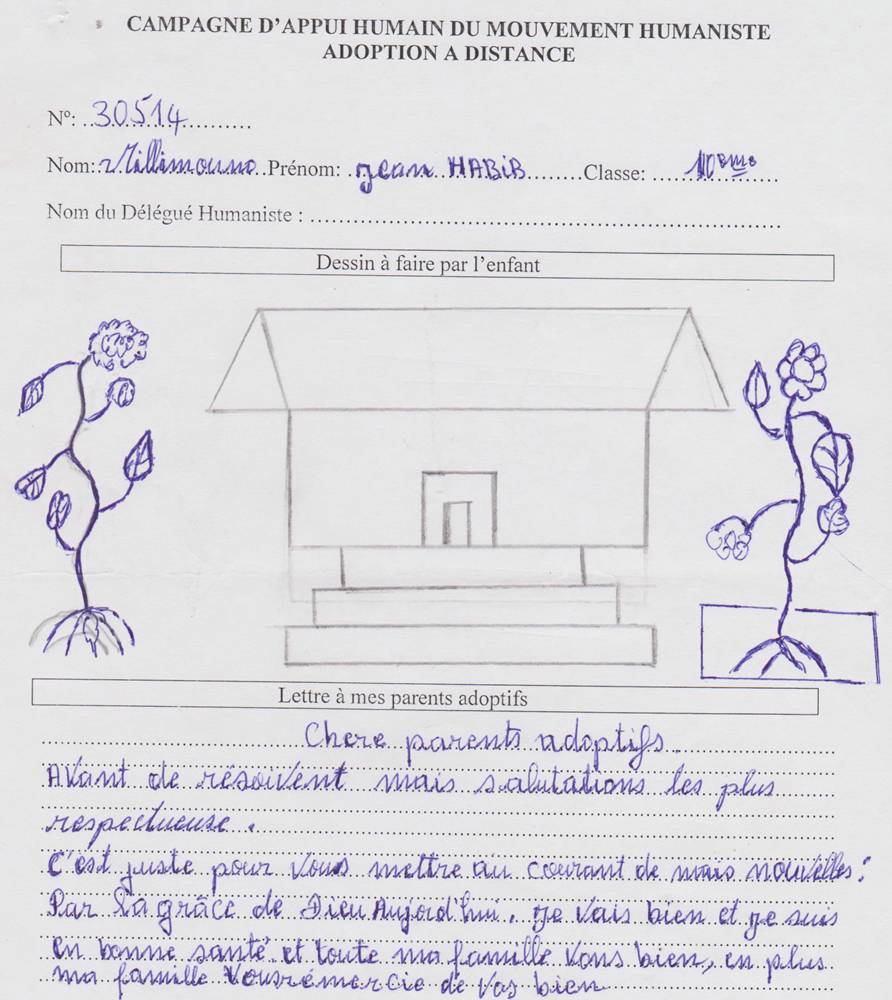 CAMPAGNE D'APPUI HUMAIN DU MOUVEMENT HUMANISTE
ADOPTION A DISTANCE
Nº: 30514
Nom: Millimouno Prénom: jean HABIB Classe: 10eme
Nom du Délégué Humaniste :
Dessin à faire par l'enfant
Lettre à mes parents adoptifs
Chere parents adoptifs
AVant de résoivent mais salutations les plus
respectueuse.
C'est juste pour Vous mettre au courant de mais nouvelles:
Par la grâce de Dieu Aujord'hui, je vais bien et je suis
en bonne santé et toute ma famille Vons bien, en plus
ma famille Vous rémercie de Vos bien